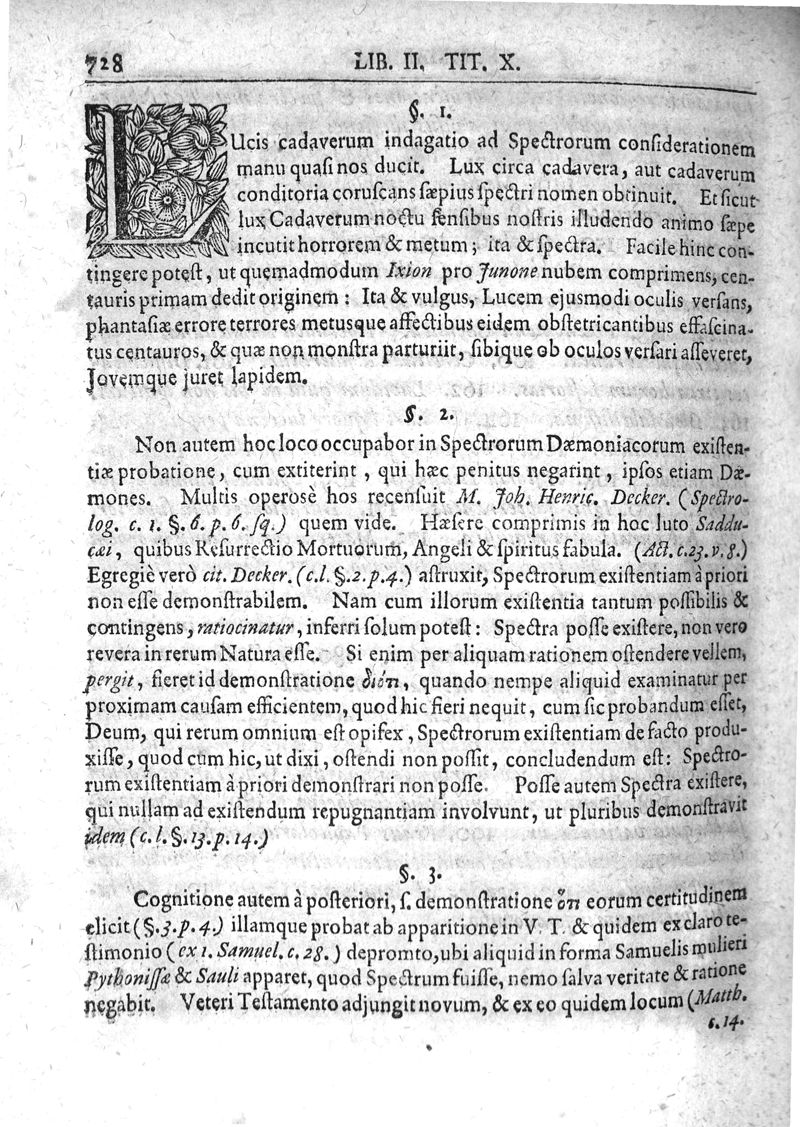 728 LIB. II. TIT. X.
§. 1.
LUcis cadaverum indagatio ad Spectrorum considerationem
manu quasi nos ducit. Lux circa cadavera, aut cadaverum
conditoria coruscans sæpius spectri nomen obtinuit. Et sicut
lux Cadaverum noctu sensibus nostris illudendo animo sæpe
incutit horrorem & metum; ita & spectra. Facile hinc con-
tingere potest, ut quemadmodum Ixion pro Junone nubem comprimens, cen-
tauris primam dedit originem: Ita & vulgus, Lucem ejusmodi oculis versans,
phantasiæ errore terrores metusque affectibus eidem obstetricantibus effascina-
tus centauros, & quæ non monstra parturiit, sibique ob oculos versari asseveret,
Jovemque juret lapidem.
§. 2.
Non autem hoc loco occupabor in Spectrorum Dæmoniacorum existen-
tiæ probatione, cum extiterint, qui hæc penitus negarint, ipsos etiam Dæ-
mones. Multis operosè hos recensuit M. Joh. Henric. Decker. (Spectro-
log. c. 1. §. 6. p. 6. sq.) quem vide. Hæsere comprimis in hoc luto Saddu-
cæi, quibus Resurrectio Mortuorum, Angeli & spiritus fabula. (Act. c. 23. v. 8.)
Egregiè verò cit. Decker. (c. l. §. 2. p. 4.) astruxit, Spectrorum existentiam à priori
non esse demonstrabilem. Nam cum illorum existentia tantum possibilis &
contingens, ratiocinatur, inferri solum potest: Spectra posse existere, non vero
revera in rerum Natura esse. Si enim per aliquam rationem ostendere vellem,
pergit, fieret id demonstratione διότι, quando nempe aliquid examinatur per
proximam causam efficientem, quod hic fieri nequit, cum sic probandum esset,
Deum, qui rerum omnium est opifex, Spectrorum existentiam de facto produ-
xisse, quod cum hic, ut dixi, ostendi non possit, concludendum est: Spectro-
rum existentiam à priori demonstrari non posse. Posse autem Spectra existere,
qui nullam ad existendum repugnantiam involvunt, ut pluribus demonstravit
idem (c. l. §. 13. p. 14.)
§. 3.
Cognitione autem à posteriori, s. demonstratione ὅτι eorum certitudinem
elicit (§. 3. p. 4.) illamque probat ab apparitione in V. T. & quidem ex claro te-
stimonio (ex 1. Samuel. c. 28.) depromto, ubi aliquid in forma Samuelis mulieri
Pythonissæ & Sauli apparet, quod Spectrum fuisse, nemo salva veritate & ratione
negabit. Veteri Testamento adjungit novum, & ex eo quidem locum (Matth.
c. 14.